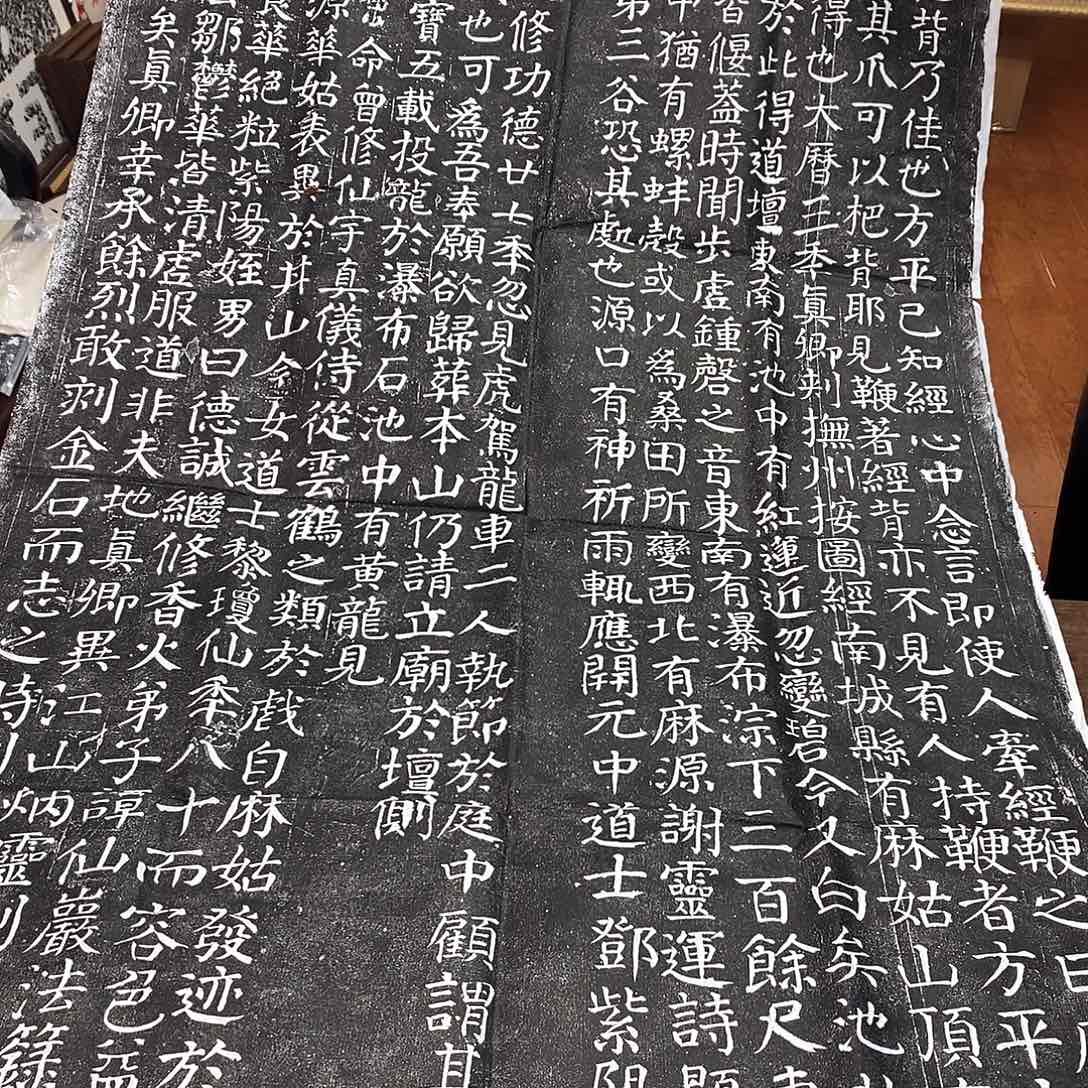 背乃佳也方平已知經心中念言即使人牽經鞭之曰
其爪可以杷背耶見鞭著經背亦不見有人持鞭者方平
得也大曆三年真卿刾撫州按圖經南城縣有麻姑山頂
於此得道壇東南有池中有紅蓮近忽變碧今又白矣池
皆偃蓋時聞步虛鍾磬之音東南有瀑布淙下三百餘尺
中猶有螺蚌殼或以為桑田所變西北有麻源謝靈運詩題
第三谷恐其處也源口有神祈雨輒應開元中道士鄧紫陽
修功德廿七年忽見虎駕龍車二人執節於庭中顧謂其
也可為吾奉願欲歸葬本山仍請立廟於壇側
寶五載投龍於瀑布石池中有黃龍見
命曾修仙宇真儀侍從雲鶴之類於戲自麻姑發迹於
源華姑表異於井山今女道士黎瓊仙年八十而容色益
華絕粒紫陽姪男曰德誠繼修香火弟子譚仙巖法籙
鄒鬱華皆清虛服道非夫地真卿異江山炳靈則
矣真卿幸承餘烈敢刻金石而志之時